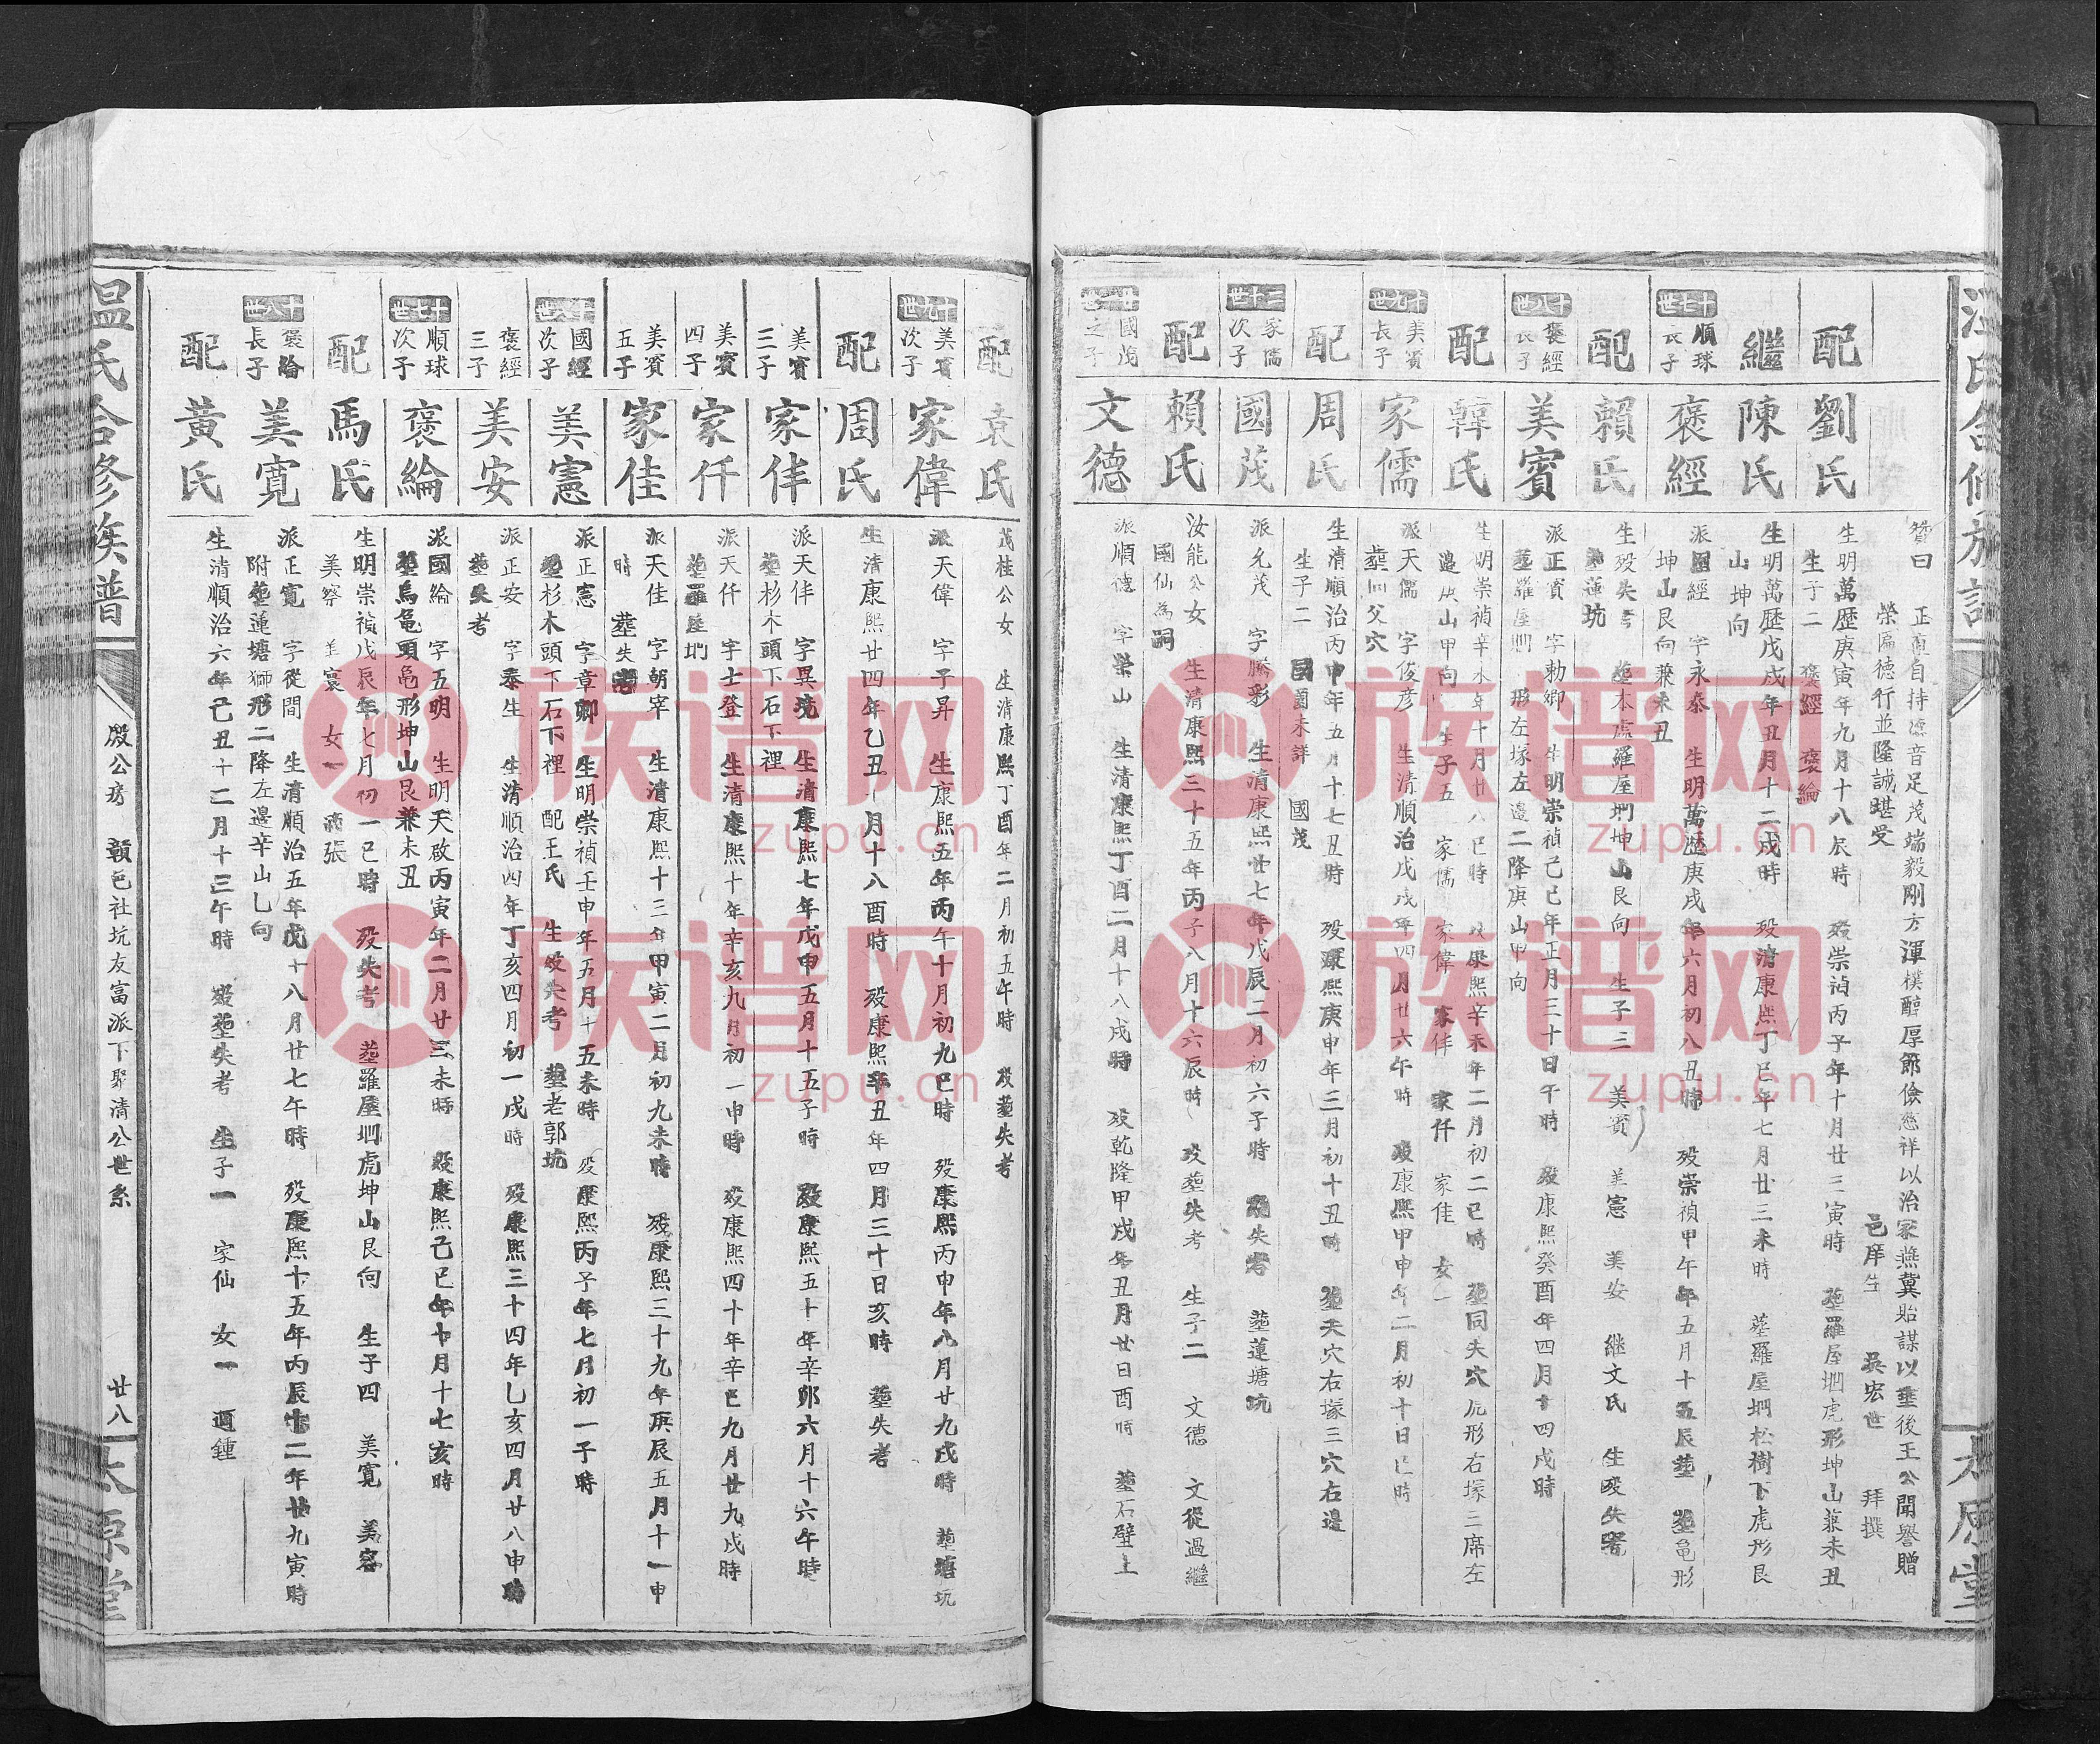 贊曰　正直自持德音足茂端毅剛方渾樸醇厚節儉慈祥以治家燕冀貽謀以垂後王公聞譽贈
榮匾德行並隆誠堪受　邑庠生　吳宏世　拜撰
配　劉氏　生明萬歷庚寅年九月十八辰時　歿崇禎丙子年十月廿三寅時　塟羅屋坿虎形坤山兼未丑
生子二　褒經　褒綸
繼　陳氏　生明萬歷戊戌年丑月十二戌時　歿清康熙丁巳年七月廿三未時　塟羅屋坿松樹下虎形艮
山坤向
十七世　順球長子　褒經　派國經　字永泰　生明萬歷庚戌年六月初八丑時　歿崇禎甲午年五月十五辰　塟黾形
坤山艮向兼未丑
配　賴氏　生歿失考　塟本處羅屋坿坤山艮向　生子三　美賓　美憲　美安　继文氏　生歿失考
塟蓮坑
十八世　褒經長子　美賓　派正賓　字勅卿　生明崇禎己巳年正月三十日午時　歿康熙癸酉年四月十四戌時
塟羅屋坿　形左塚左邊二降庚山甲向
配　韓氏　生明崇禎辛未年十月廿八巳時　歿康熙辛未年二月初二巳時　塟同夫穴虎形右塚三席左
邊庚山甲向　生子五　家儒　家偉　家佯　家仟　家佳　女一
十九世　美賓長子　家儒　派天儒　字俊彦　生清順治戊戌年四月廿六午時　歿康熙甲申年二月初十日巳時
塟仝父穴
配　周氏　生清順治丙申年五月十七丑時　歿康熙庚申年三月初十丑時　塟夫穴右塚三穴右邊
生子二　國菌未詳　國茂
二十世　家儒次子　國茂　派允茂　字騰彩　生清康熙廿七年戊辰二月初六子時　歿失考　塟蓮塘坑
配　賴氏　汝能公女　生清康熙三十五年丙子八月十六辰時　歿塟失考　生子二　文德　文從過繼
國仙為嗣
國茂之子　文德　派順德　字榮山　生清康熙丁酉二月十八戌時　歿乾隆甲戌年丑月廿日酉時　塟石壁上
配　袁氏　茂桂公女　生清康熙丁酉年二月初五午時　歿塟失考
十九世　美賓次子　家偉　派天偉　字子昇　生康熙五年丙午十月初九巳時　歿康熙丙申年八月廿九戌時　塟塘坑
配　周氏　生清康熙廿四年乙丑十月十八酉時　歿康熙辛丑年四月三十日亥時　塟失考
美賓三子　家佯　派天佯　字異境　生清康熙七年戊申五月十五子時　歿康熙五十年辛卯六月十六午時
塟杉木頭下石下裡
美賓四子　家仟　派天仟　字士登　生清康熙十年辛亥九月初一申時　歿康熙四十年辛巳九月廿九戌時
塟羅屋坿
美賓五子　家佳　派天佳　字朝宰　生清康熙十三年甲寅二月初九未時　歿康熙三十九年庚辰五月十一申
時　塟失考
十八世　國經次子　美憲　派正憲　字章卿　生明崇禎壬申年五月十五未時　歿康熙丙子年七月初一子時
塟杉木頭下石下裡　配王氏　生歿失考　塟老郭坑
褒經三子　美安　派正安　字泰生　生清順治四年丁亥四月初一戌時　歿康熙三十四年乙亥四月廿八申時
塟失考
十七世　順球次子　褒綸　派國綸　字五明　生明天啟丙寅年二月廿三未時　歿康熙己巳年十月十七亥時
塟烏龟頭黾形坤山艮兼未丑
配　馬氏　生明崇禎戊辰年七月初一巳時　歿失考　塟羅屋坿虎坤山艮向　生子四　美寬　美容
美察　美寰　女一　適張
十八世　褒綸長子　美寬　派正寬　字從間　生清順治五年戊十八月廿七午時　歿康熙十五年丙辰十二年廿九寅時
附塟蓮塘獅形二降左邊辛山乙向
配　黃氏　生清順治六年己丑十二月十三午時　歿塟失考　生子一　家仙　女一　適鍾
溫氏合修族譜　殷公房　贛邑社坑友富派下聚清公世系　廿八　太原堂